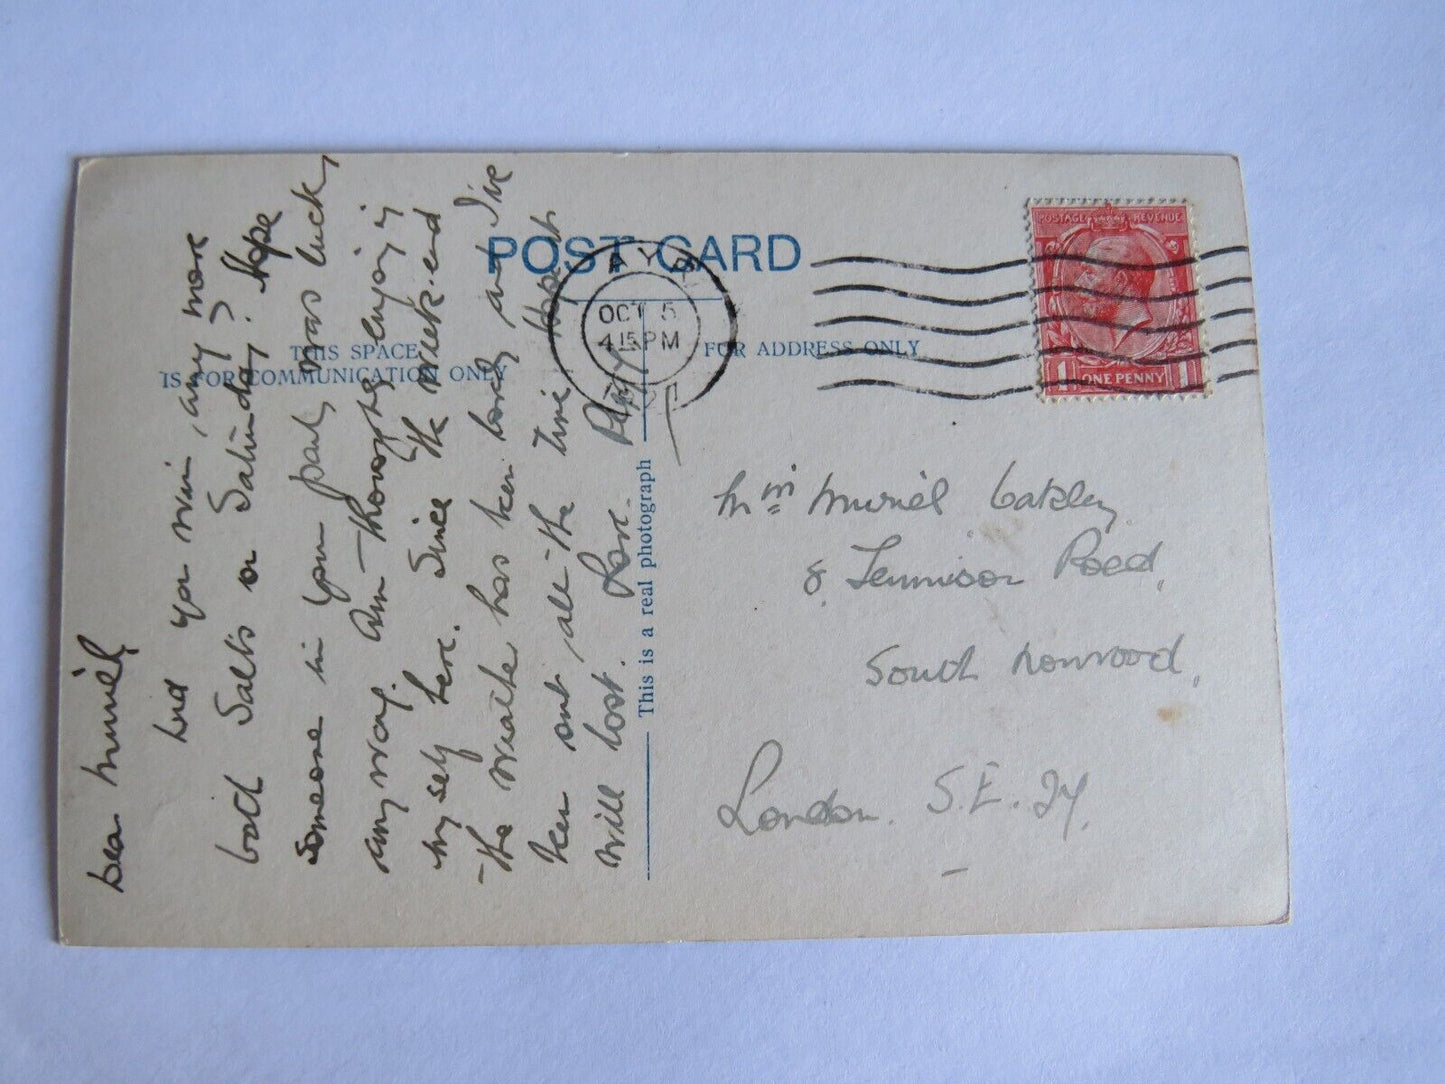 POST CARD
THIS SPACE
IS FOR COMMUNICATION ONLY
FOR ADDRESS ONLY
This is a real photograph
AYR
OCT 5
4 15 PM
POSTAGE REVENUE
1 ONE PENNY 1
Dear Muriel
Did you win any more
bath Salts on Saturday? Hope
someone in your party was lucky
anyway. Am thoroughly enjoying
myself here. Since the week-end
the weather has been lovely and I've
been out all the time. Hope it
will last. Love.
Mrs Muriel Oakley
8, Tennison Road,
South Norwood,
London. S.E. 24.